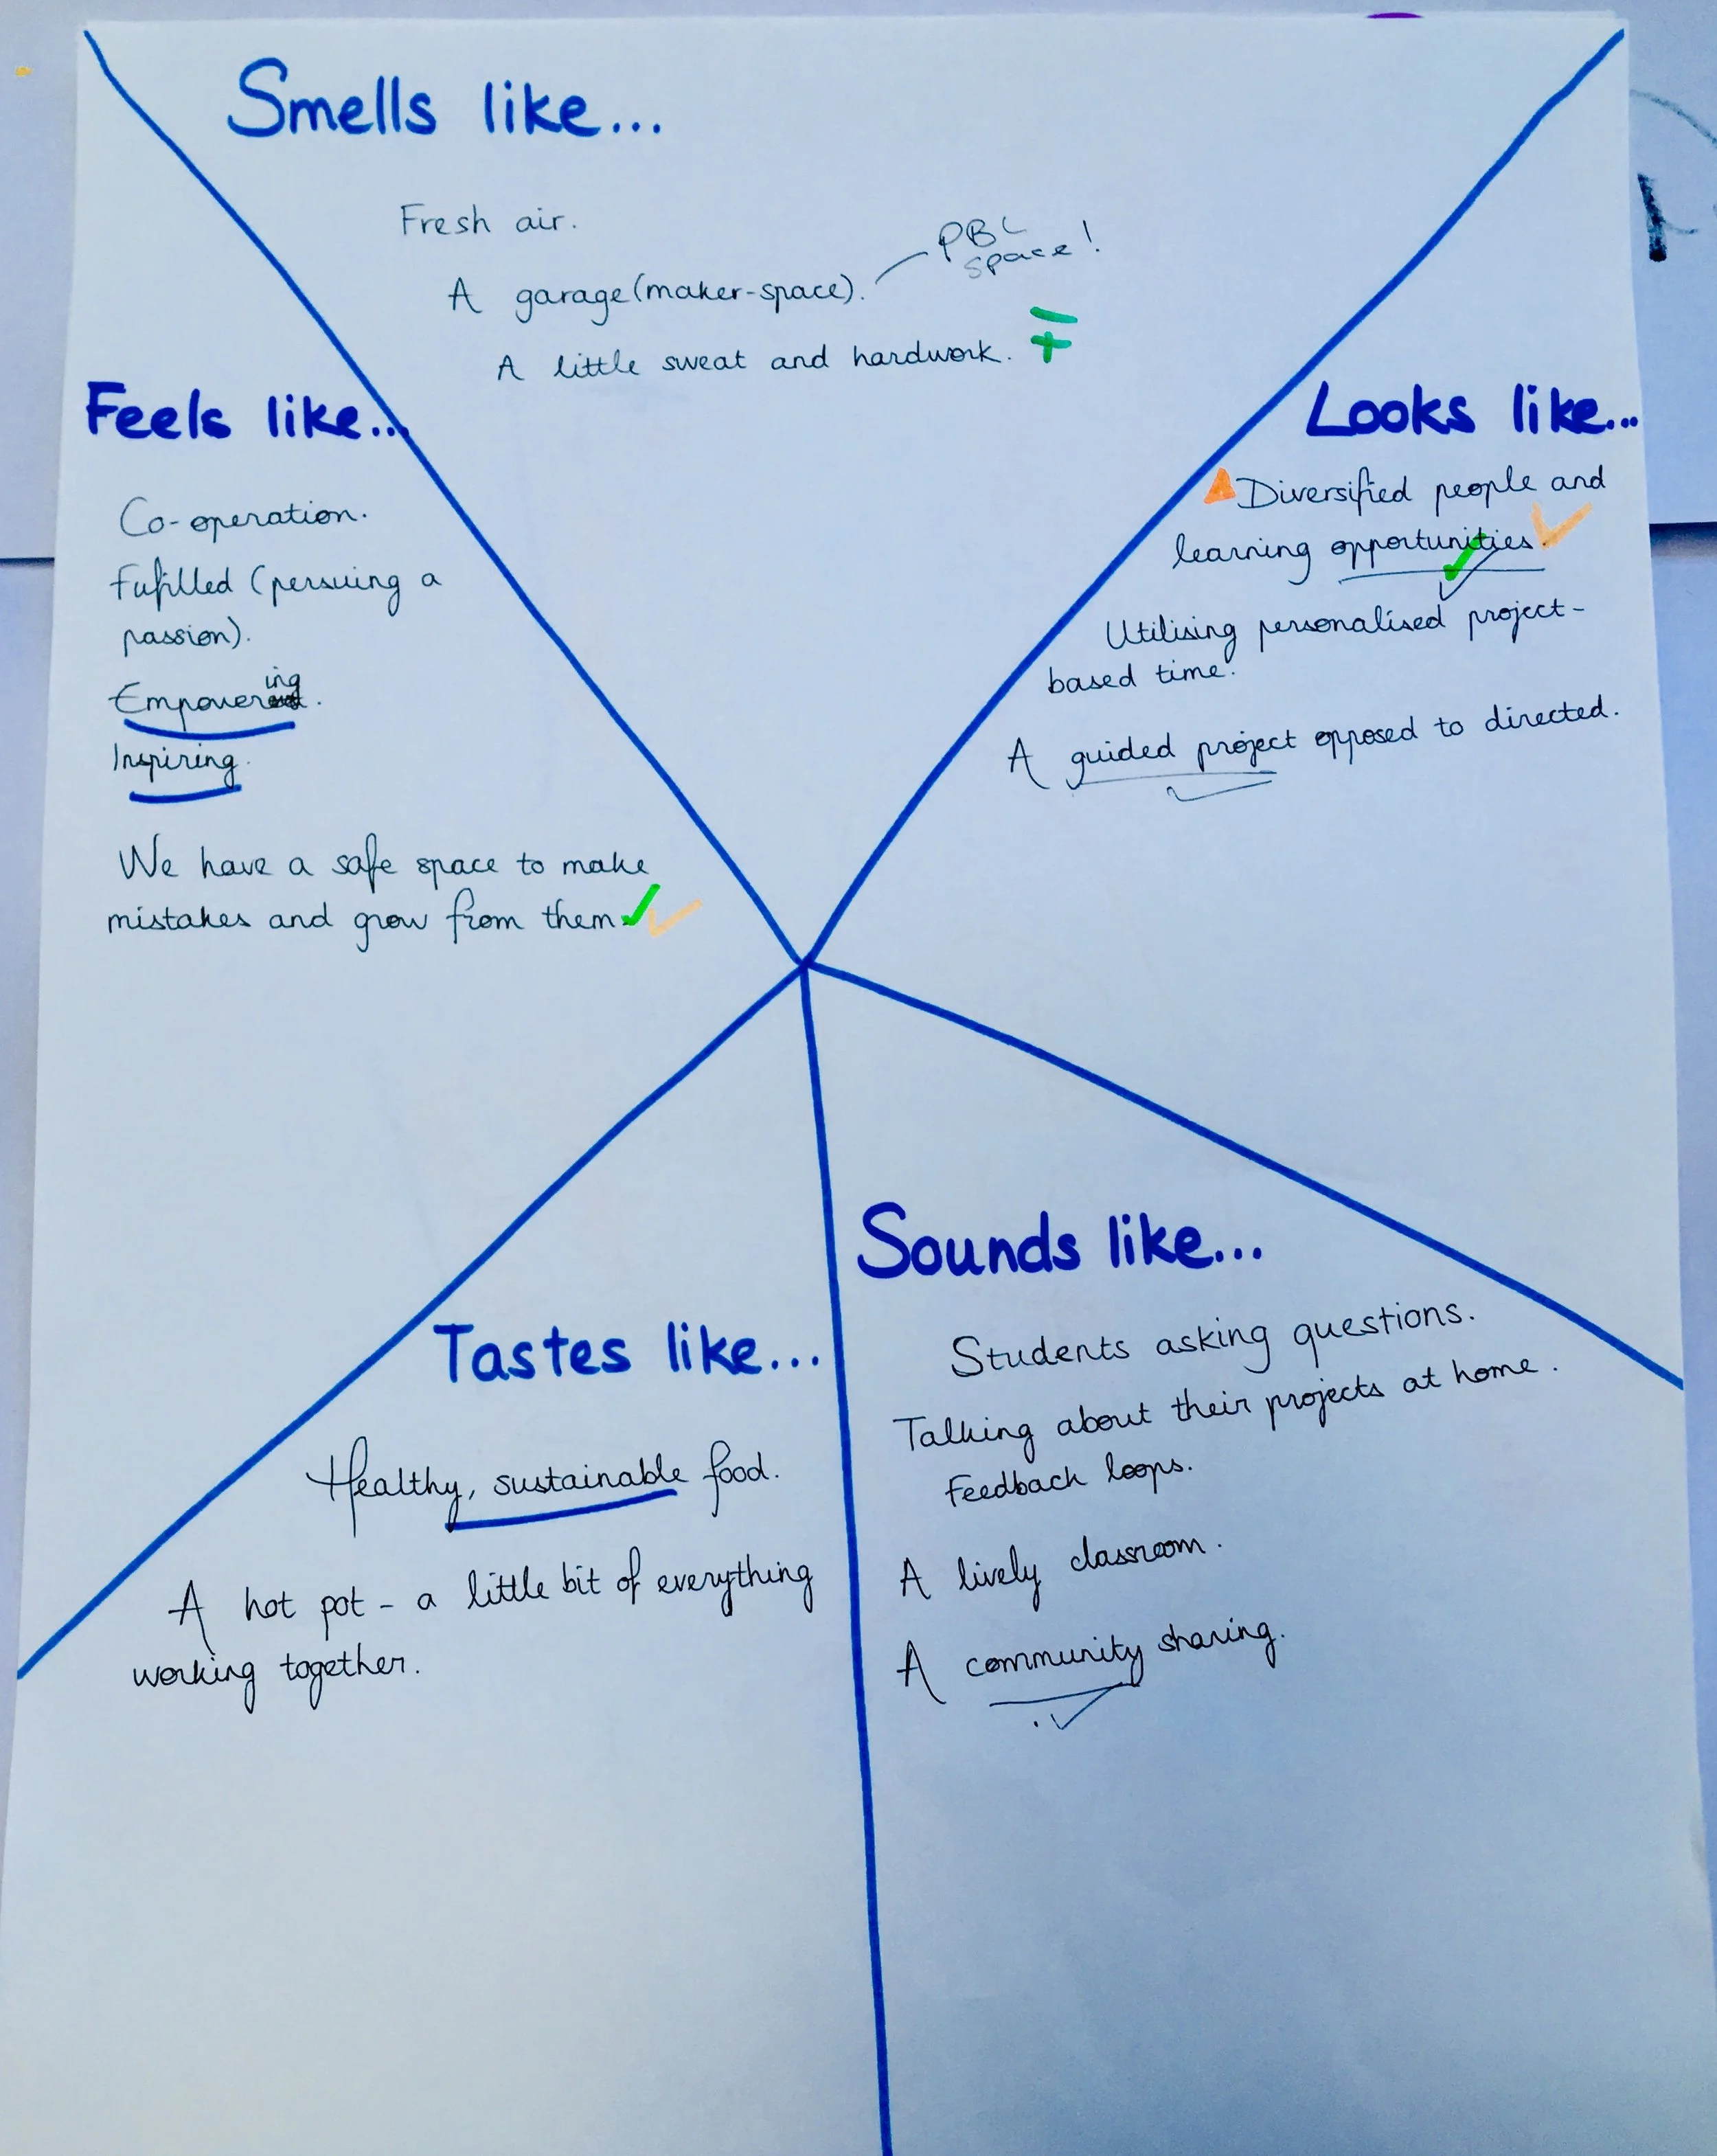 Smells like...
Fresh air.
PBL
space!
A garage (maker-space).
A little sweat and hardwork.
Feels like...
Co-operation.
Fufilled (persuing a
passion).
Empowering.
Inspiring.
We have a safe space to make
mistakes and grow from them.
Looks like...
Diversified people and
learning opportunities.
Utilising personalised project-
based time.
A guided project opposed to directed.
Tastes like...
Healthy, sustainable food.
A hot pot - a little bit of everything
working together.
Sounds like...
Students asking questions.
Talking about their projects at home.
Feedback loops.
A lively classroom.
A community sharing.